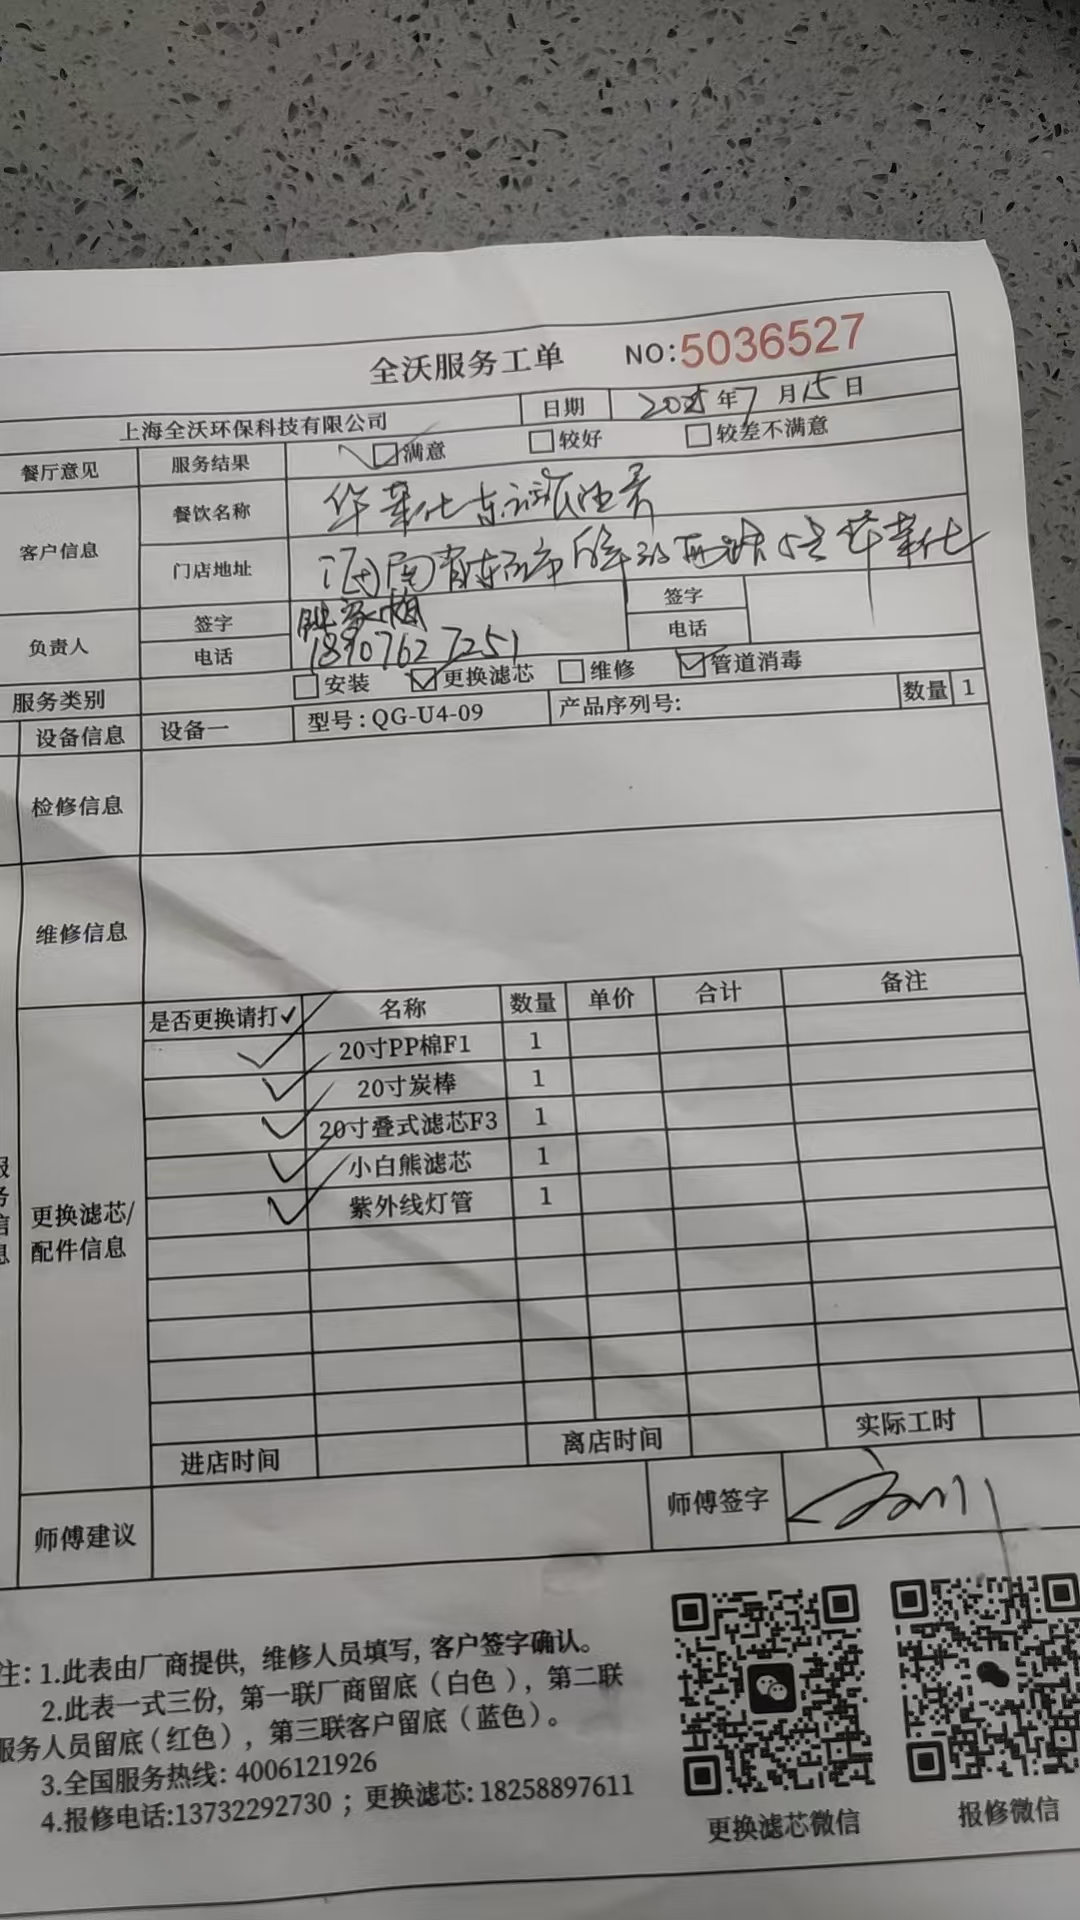 全沃服务工单 NO:5036527
上海全沃环保科技有限公司 日期 2025年7月15日
餐厅意见 服务结果 满意 较好 较差不满意
客户信息 餐饮名称 华莱仕东
门店地址 海南省东方市 华莱仕
负责人 签字 签字
电话 18907627251 电话
服务类别 安装 更换滤芯 维修 管道消毒
设备信息 设备一 型号:QG-U4-09 产品序列号: 数量 1
检修信息
维修信息
是否更换请打✓ 名称 数量 单价 合计 备注
✓ 20寸PP棉F1 1
✓ 20寸炭棒 1
✓ 20寸叠式滤芯F3 1
✓ 小白熊滤芯 1
✓ 紫外线灯管 1
服务信息
更换滤芯/
配件信息
进店时间 离店时间 实际工时
师傅建议 师傅签字
注:1.此表由厂商提供,维修人员填写,客户签字确认。
2.此表一式三份,第一联厂商留底(白色),第二联
服务人员留底(红色),第三联客户留底(蓝色)。
3.全国服务热线:4006121926
4.报修电话:13732292730;更换滤芯:18258897611
更换滤芯微信 报修微信